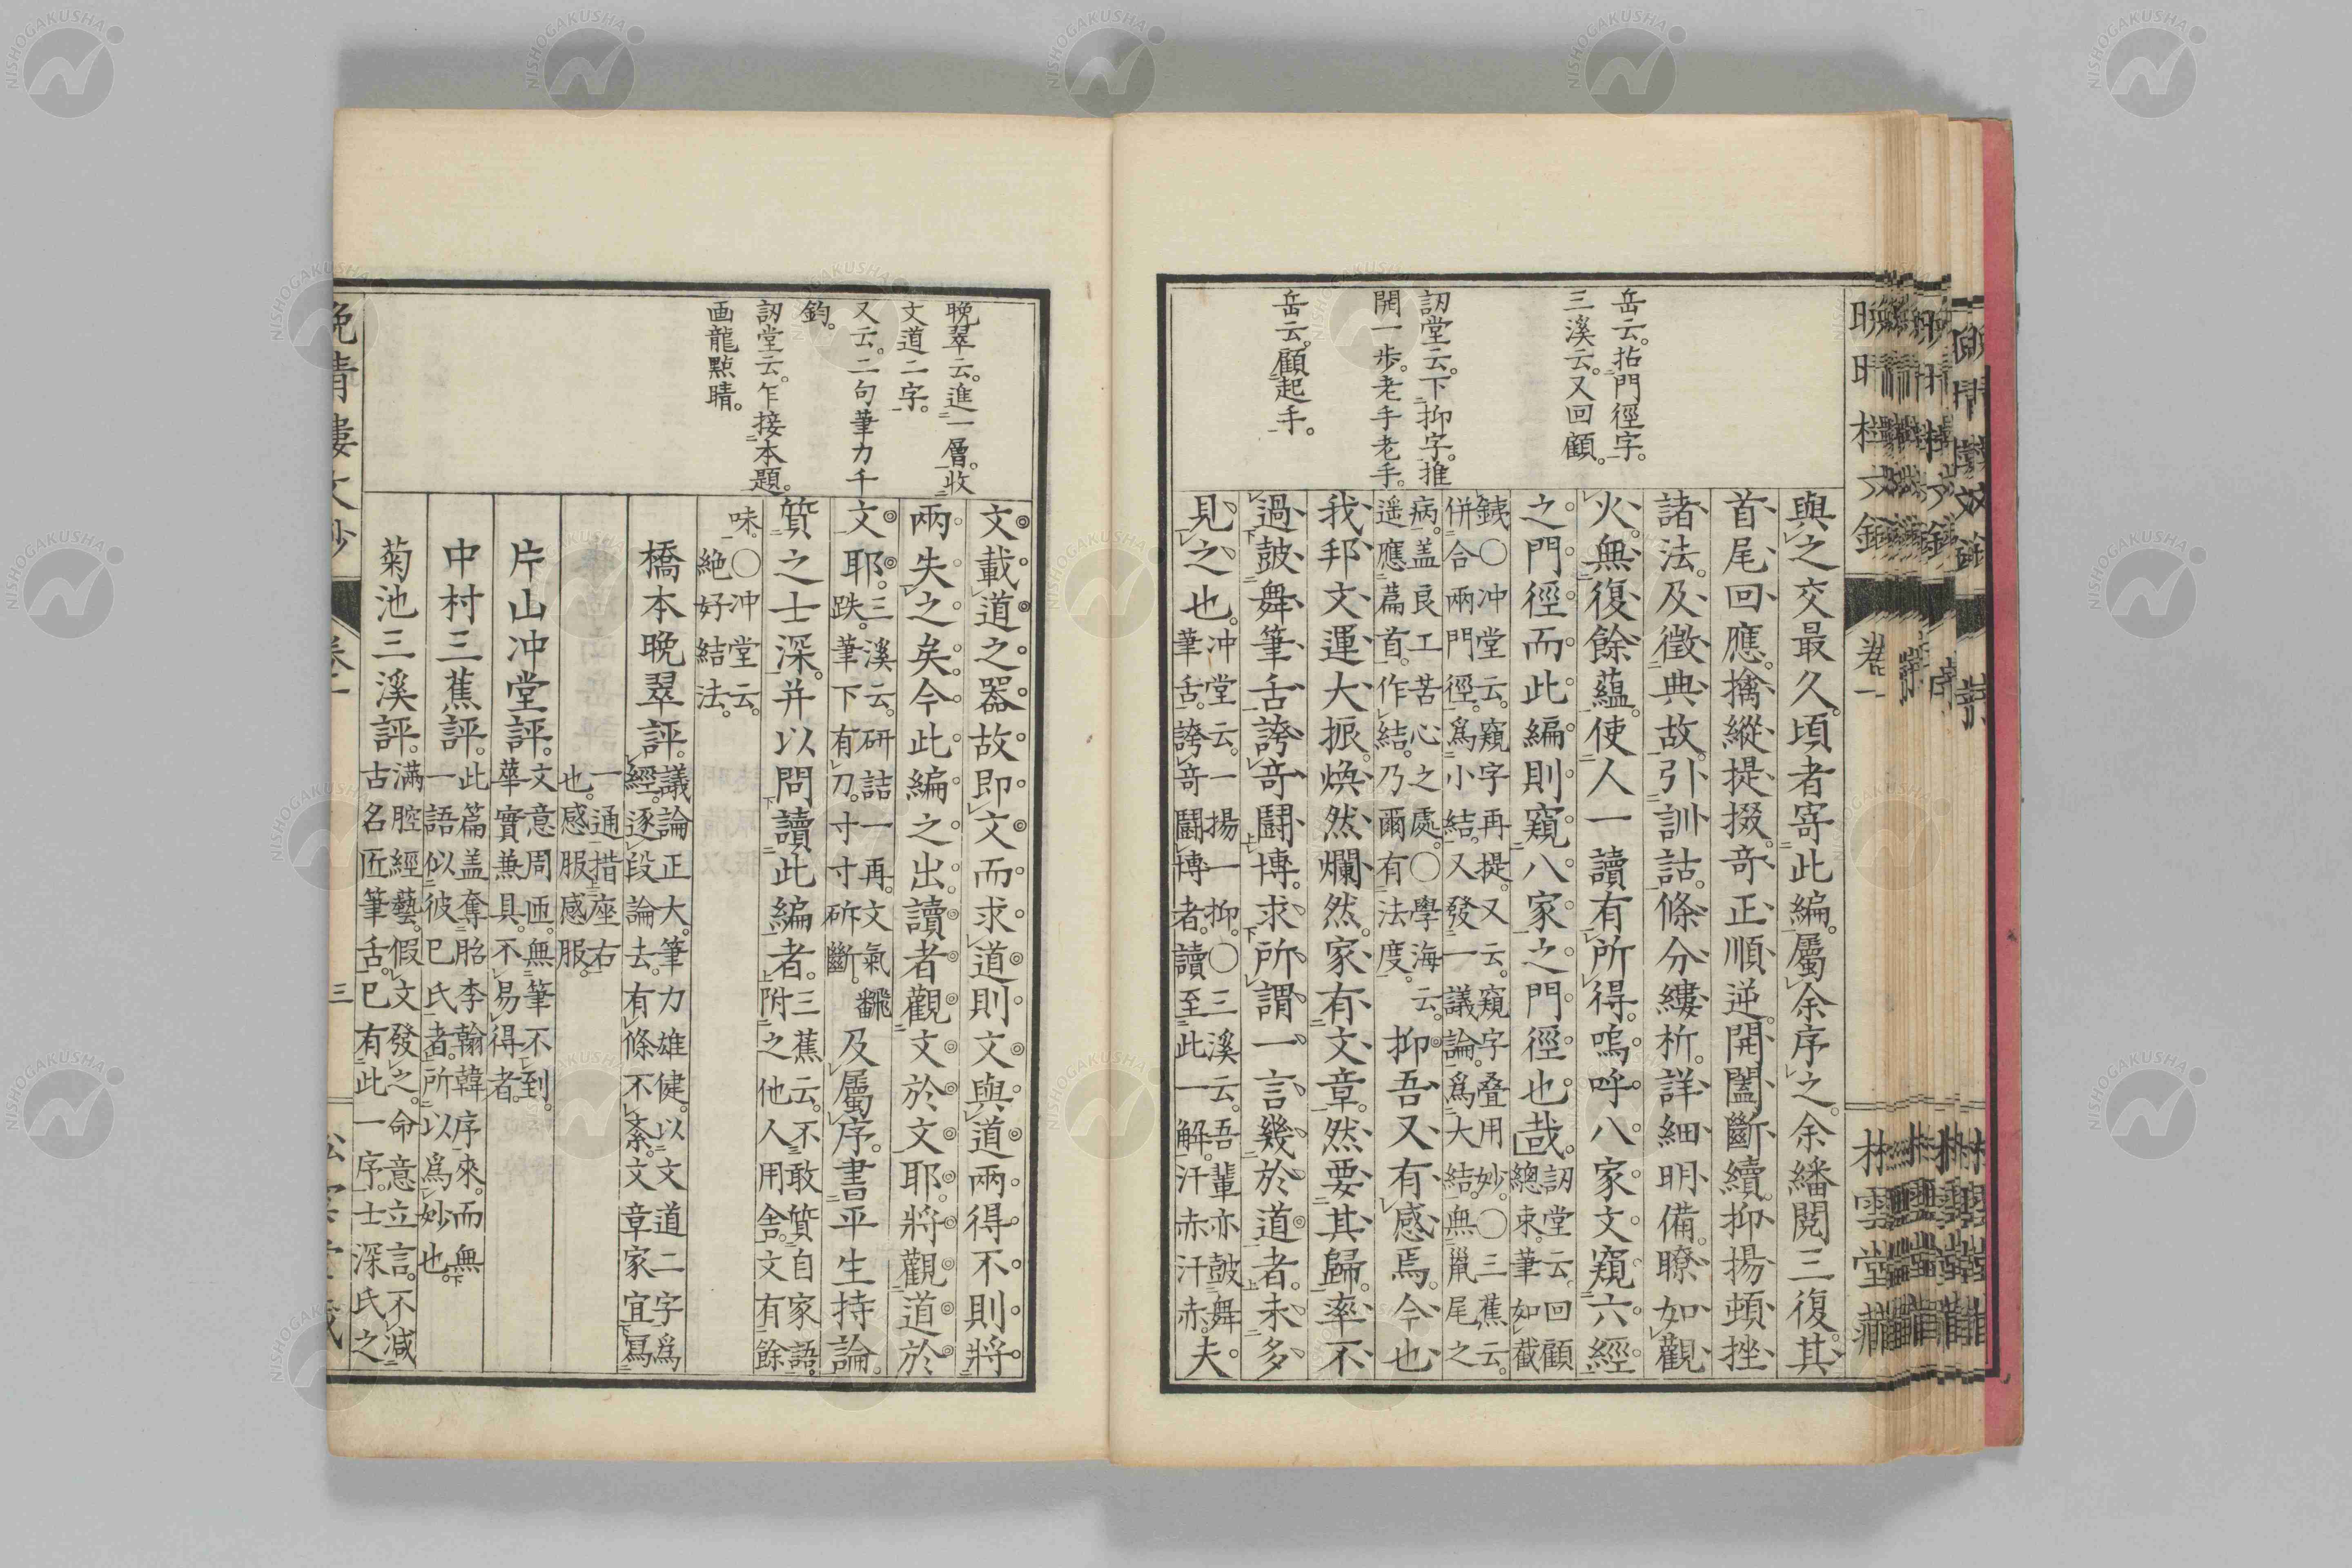 岳云。拈門徑字。
三溪云。又回顧。
訒堂云。下抑字。推
開一步。老手老手。
岳云。顧起手。
與之交最久。頃者寄此編。屬余序之。余繙閱三復。其
首尾回應。擒縱提掇。奇正順逆。開闔斷續。抑揚頓挫
諸法。及徵典故。引訓詁。條分縷析。詳細明備。瞭如觀
火。無復餘蘊。使人一讀有所得。嗚呼。八家文。窺六經。
之門徑。而此編則窺八家之門徑也哉。訒堂云。回顧
總束。筆如截
鐵〇冲堂云。窺字再提。又云。窺字叠用妙。〇三蕉云。
併合兩門徑。爲小結。又發一議論。爲大結。無鼠尾之
病。盖良工苦心之處。〇學海云。
遥應篇首。作結。乃爾有法度。抑吾又有感焉。今也
我邦文運大振。煥然爛然。家有文章。然要其歸。率不
過鼓舞筆舌。誇奇鬪博。求所謂一言幾於道者。未多
見之也。冲堂云。一揚一抑。〇三溪云。吾輩亦鼓舞
筆舌。誇奇鬪博者。讀至此一解。汗赤汗赤。夫
卷一
林雲堂藏
晚翠云。進一層。收
文道二字。
又云。二句筆力千
鈞。
訒堂云。乍接本題。
画龍點睛。
文載道之器。故即文而求道。則文與道兩得。不則將
兩失之矣。今此編之出。讀者觀文於文耶。將觀道於
文耶。三溪云。研詰一再。文氣飜
跌。筆下有刀。寸寸斫斷。及屬序。書平生持論。
質之士深。并以問讀此編者。三蕉云。不敢質自家語。
附之他人用舍。文有餘
味。〇冲堂云。
絶好結法。
橋本晚翠評。議論正大。筆力雄健。以文道二字爲
經。逐段論去。有條不紊。文章家宜寫
一通措座右
也。感服感服。
片山冲堂評。文意周匝。無筆不到。
華實兼具。不易得者。
中村三蕉評。此篇盖奪胎李翰韓序來。而無
一語似彼巳氏者。所以爲妙也。
菊池三溪評。滿腔經藝。假文發之。命意立言。不減
古名匠筆舌。巳有此一序。士深氏之
晚晴樓文鈔
卷一
三